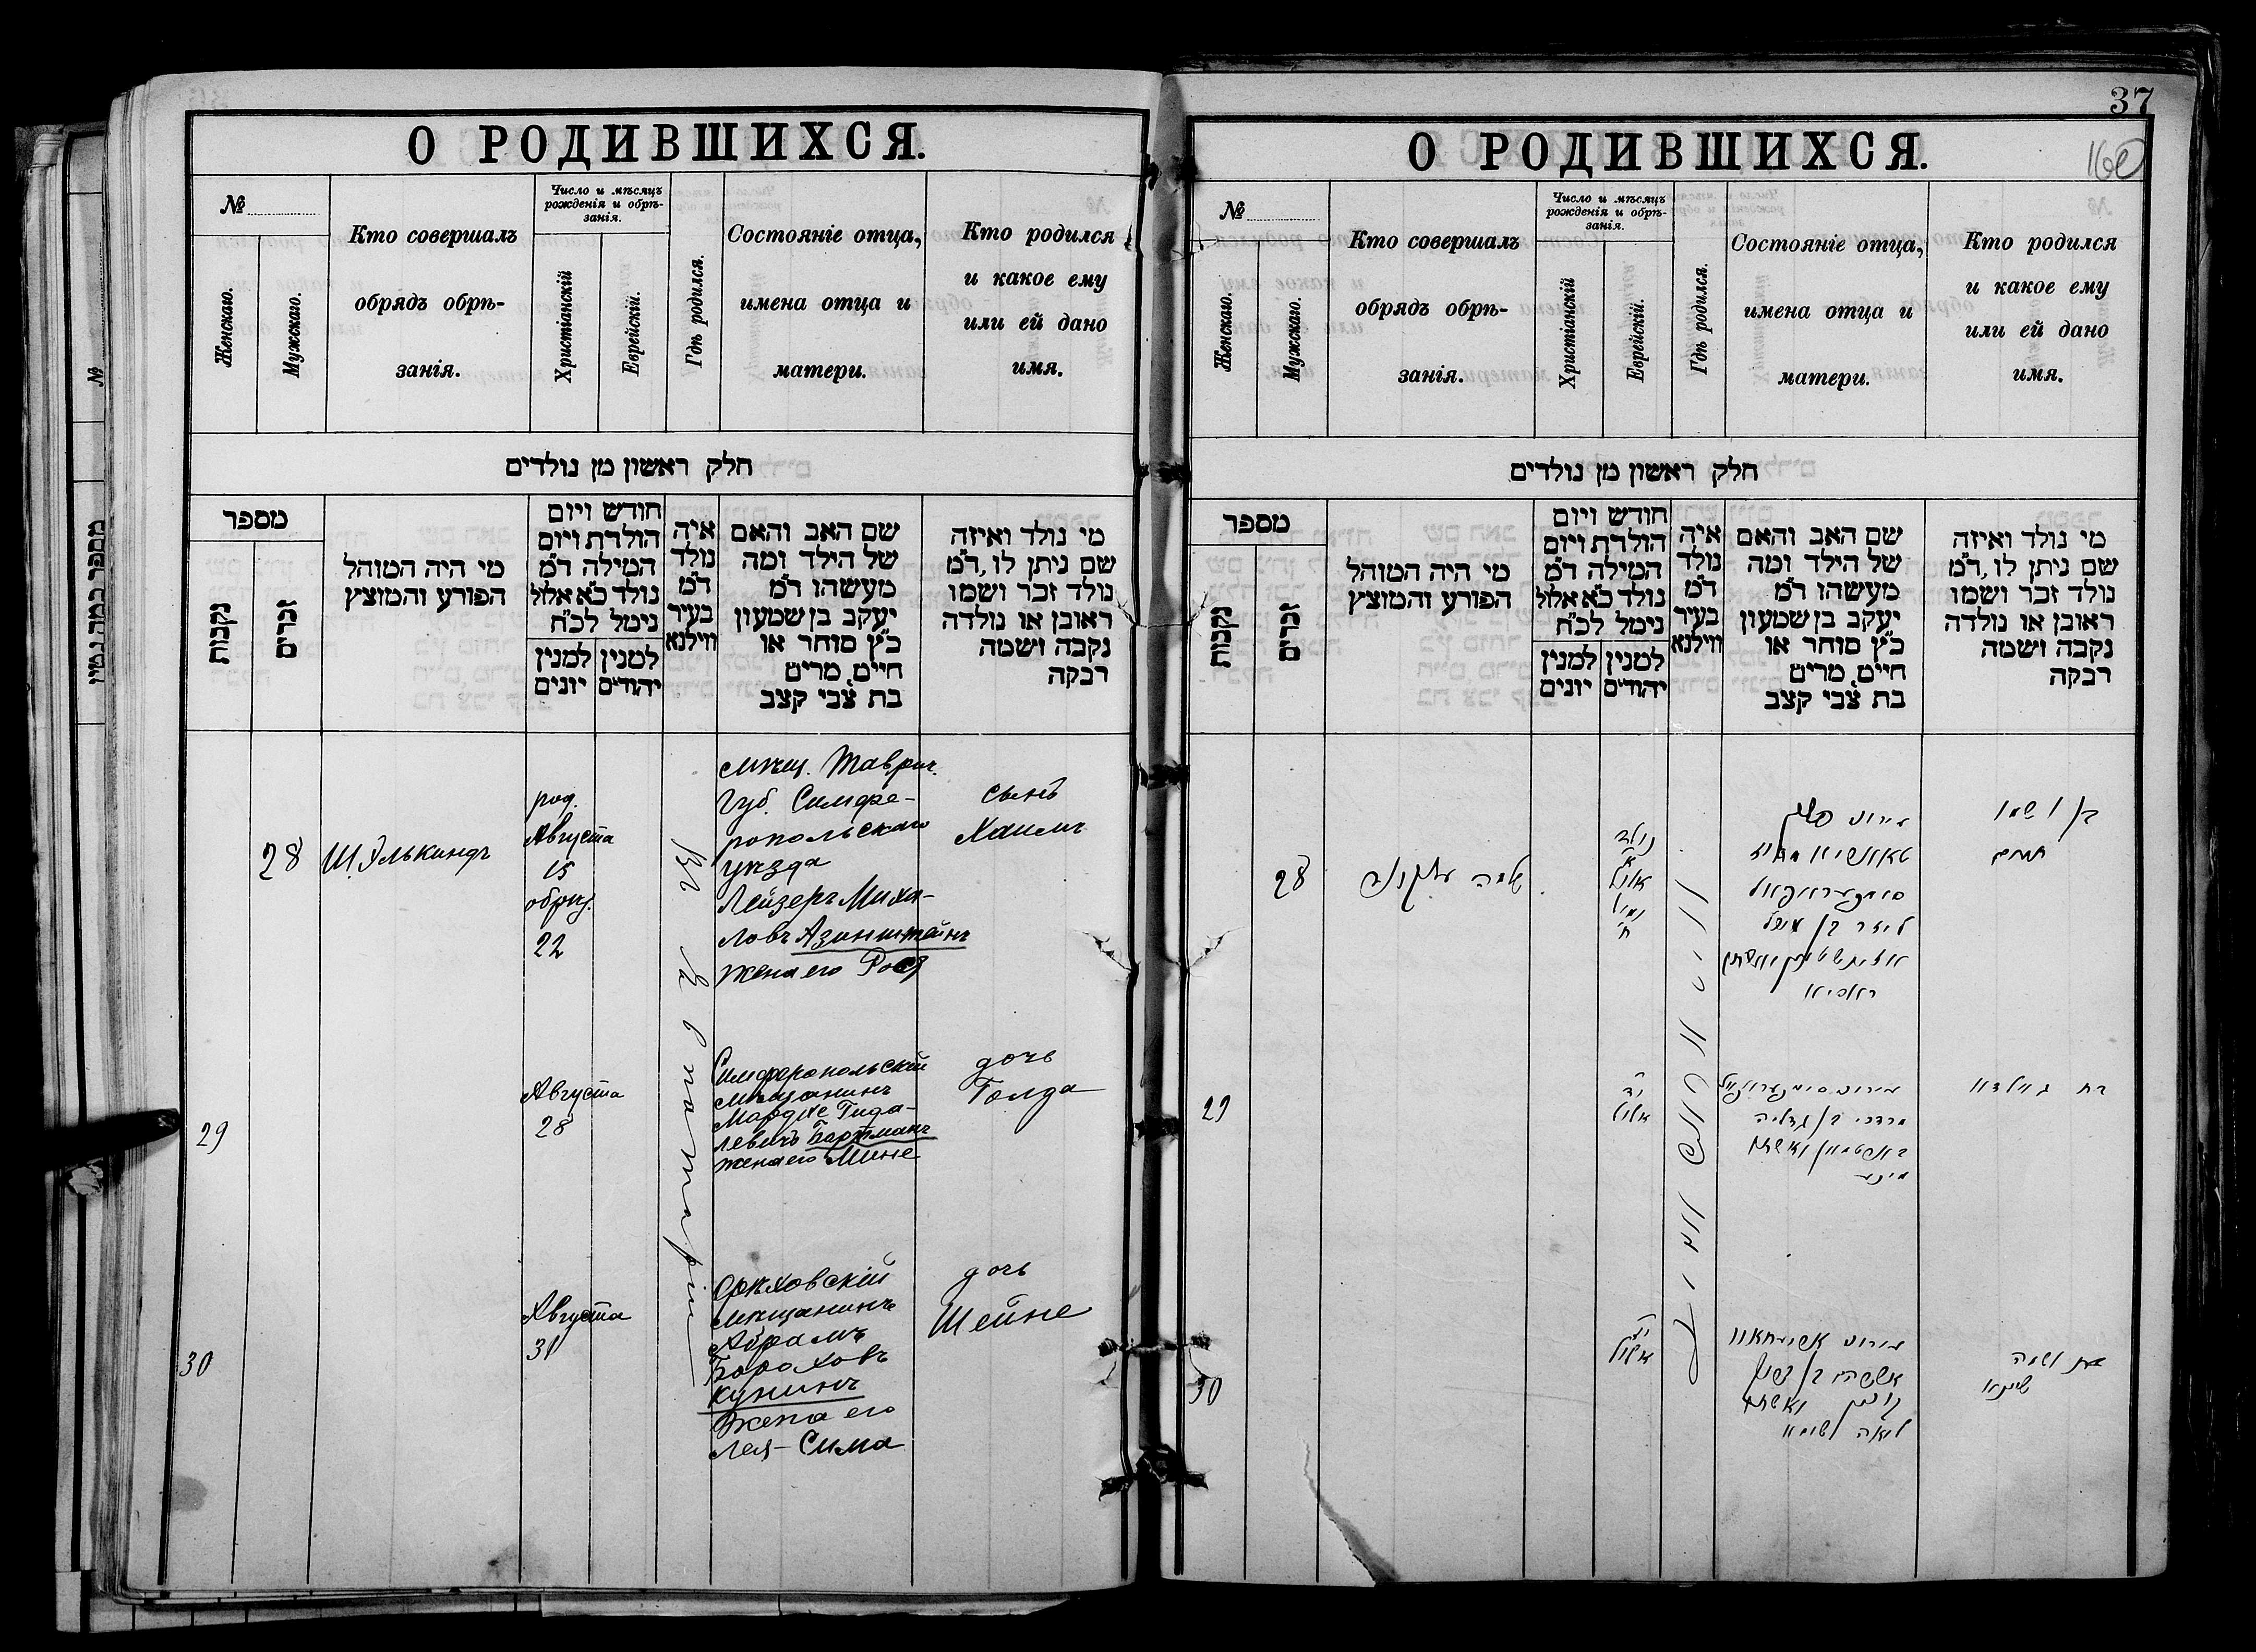 О РОДИВШИХСЯ.
№
Женскаго.
Мужскаго.
Кто совершалъ
обрядъ обрѣ-
занія.
Число и мѣсяцъ
рожденія и обрѣ-
занія.
Христіанскій
Еврейскій.
Гдѣ родился.
Состояніе отца,
имена отца и
матери.
Кто родился
и какое ему
или ей дано
имя.
חלק ראשון מן נולדים
מספר
נקבות
זכרים
מי היה המוהל
הפורע והמוצץ
חודש ויום
הולדת ויום
המילה ד״מ
נולד כ״א אלול
נימל לכ״ח
למנין
יונים
למנין
יהודים
איה
נולד
ד״מ
בעיר
ווילנא
שם האב והאם
של הילד ומה
מעשהו ד״מ
יעקב בן שמעון
כ״ץ סוחר או
חיים, מרים
בת צבי קצב
מי נולד ואיזה
שם ניתן לו, ד״מ
נולד זכר ושמו
ראובן או נולדה
נקבה ושמה
רבקה
28
Ш. Элькиндъ
род.
Августа
15
обрѣз.
22
Въ г. Евпаторіи
мѣщ. Таврич.
Губ. Симфе-
ропольскаго
уѣзда
Лейзеръ Миха-
ловъ Азинштейнъ
жена его Рося
сынъ
Хаимъ
29
Августа
28
Симферопольскій
мѣщанинъ
Мордхе Гида-
левичъ Бортманъ
жена его Мине
дочь
Голда
30
Августа
31
Орѣховскій
мѣщанинъ
Абрамъ
Бороховъ
Кунинъ
Жена его
Лея-Сима
дочь
Шейне
37
160
О РОДИВШИХСЯ.
№
Женскаго.
Мужскаго.
Кто совершалъ
обрядъ обрѣ-
занія.
Число и мѣсяцъ
рожденія и обрѣ-
занія.
Христіанскій
Еврейскій.
Гдѣ родился.
Состояніе отца,
имена отца и
матери.
Кто родился
и какое ему
или ей дано
имя.
חלק ראשון מן נולדים
מספר
נקבות
זכרים
מי היה המוהל
הפורע והמוצץ
חודש ויום
הולדת ויום
המילה ד״מ
נולד כ״א אלול
נימל לכ״ח
למנין
יונים
למנין
יהודים
איה
נולד
ד״מ
בעיר
ווילנא
שם האב והאם
של הילד ומה
מעשהו ד״מ
יעקב בן שמעון
כ״ץ סוחר או
חיים, מרים
בת צבי קצב
מי נולד ואיזה
שם ניתן לו, ד״מ
נולד זכר ושמו
ראובן או נולדה
נקבה ושמה
רבקה
28
נולד
א
אלול
נמול
ח
ליזר בן
בן ושמו
חיים
29
אלול
מרדכי בן גדליה
ואשתו
בת גאלדא
30
אלול
ואשתו
לאה
בת ושמה
שיינא